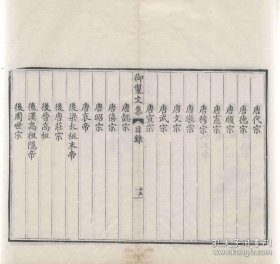 唐代宗
唐德宗
唐順宗
唐憲宗
唐穆宗
唐敬宗
唐文宗
唐武宗
唐宣宗
御製文集 目錄
唐懿宗
唐僖宗
唐昭宗
唐哀帝
後梁太祖末帝
後唐莊宗
後晉高祖
後漢高祖隱帝
後周世宗